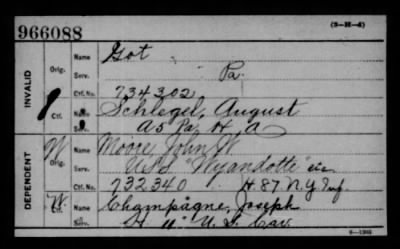 (3-M-4)
966088
INVALID
Orig.
Name Got
Serv. Pa.
Ctf. No. 734302
1
Ctf.
Name Schlegel, August
Serv. A 5 Pa. H. A
DEPENDENT
W. Orig.
Name Moore, John W.
Serv. U.S.S. "Wyandotte" etc
Ctf. No. 732340 H. 87 N.Y. Inf.
W. Ctf.
Name Champagne, Joseph
H. 11" U.S. Cav.